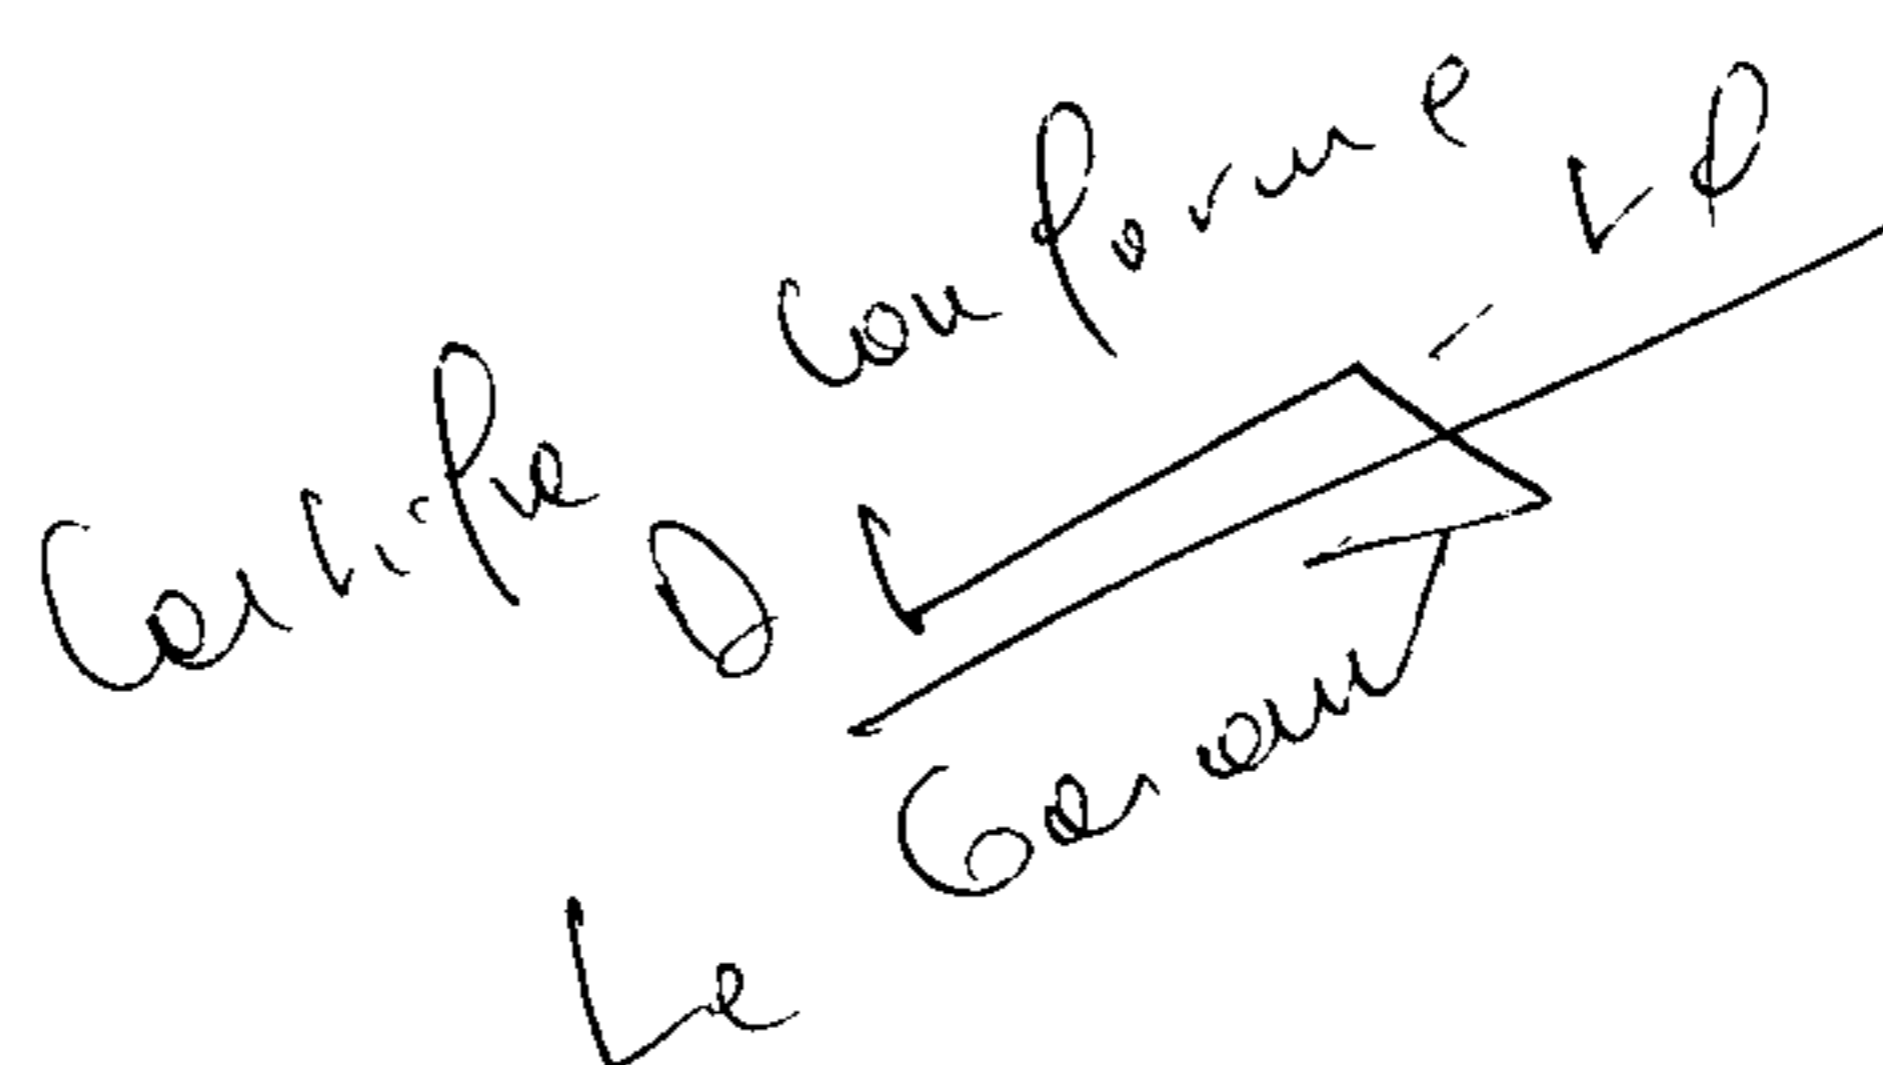 Certifie Conforme
Le Gerant